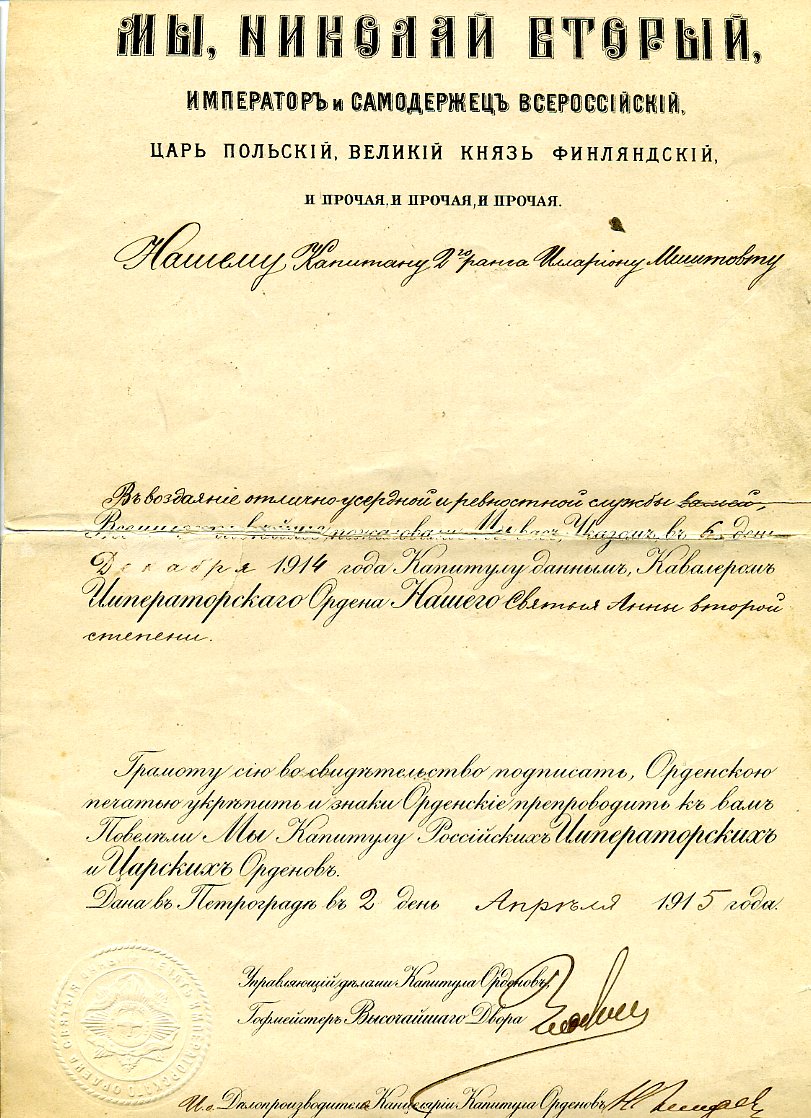 МЫ, НИКОЛАЙ ВТОРЫЙ,
ИМПЕРАТОРЪ и САМОДЕРЖЕЦЪ ВСЕРОССІЙСКІЙ,
ЦАРЬ ПОЛЬСКІЙ, ВЕЛИКІЙ КНЯЗЬ ФИНЛЯНДСКІЙ,
И ПРОЧАЯ, И ПРОЧАЯ, И ПРОЧАЯ.
Нашему Капитану 2го ранга Илларіону
Въ воздаяніе отлично-усердной и ревностной службы вашей,
пожаловали Мы васъ, Указомъ въ 6 день
Декабря 1914 года Капитулу даннымъ, Кавалеромъ
Императорскаго Ордена Нашего Святыя Анны второй
степени.
Грамоту сію во свидѣтельство подписать, Орденскою
печатью укрѣпить и знаки Орденскіе препроводить къ вамъ
Повелѣли Мы Капитулу Россійскихъ Императорскихъ
и Царскихъ Орденовъ.
Дана въ Петроградѣ въ 2 день Апрѣля 1915 года.
Управляющій дѣлами Капитула Орденовъ,
Гофмейстеръ Высочайшаго Двора
И. о. Дѣлопроизводителя Канцеляріи Капитула Орденовъ